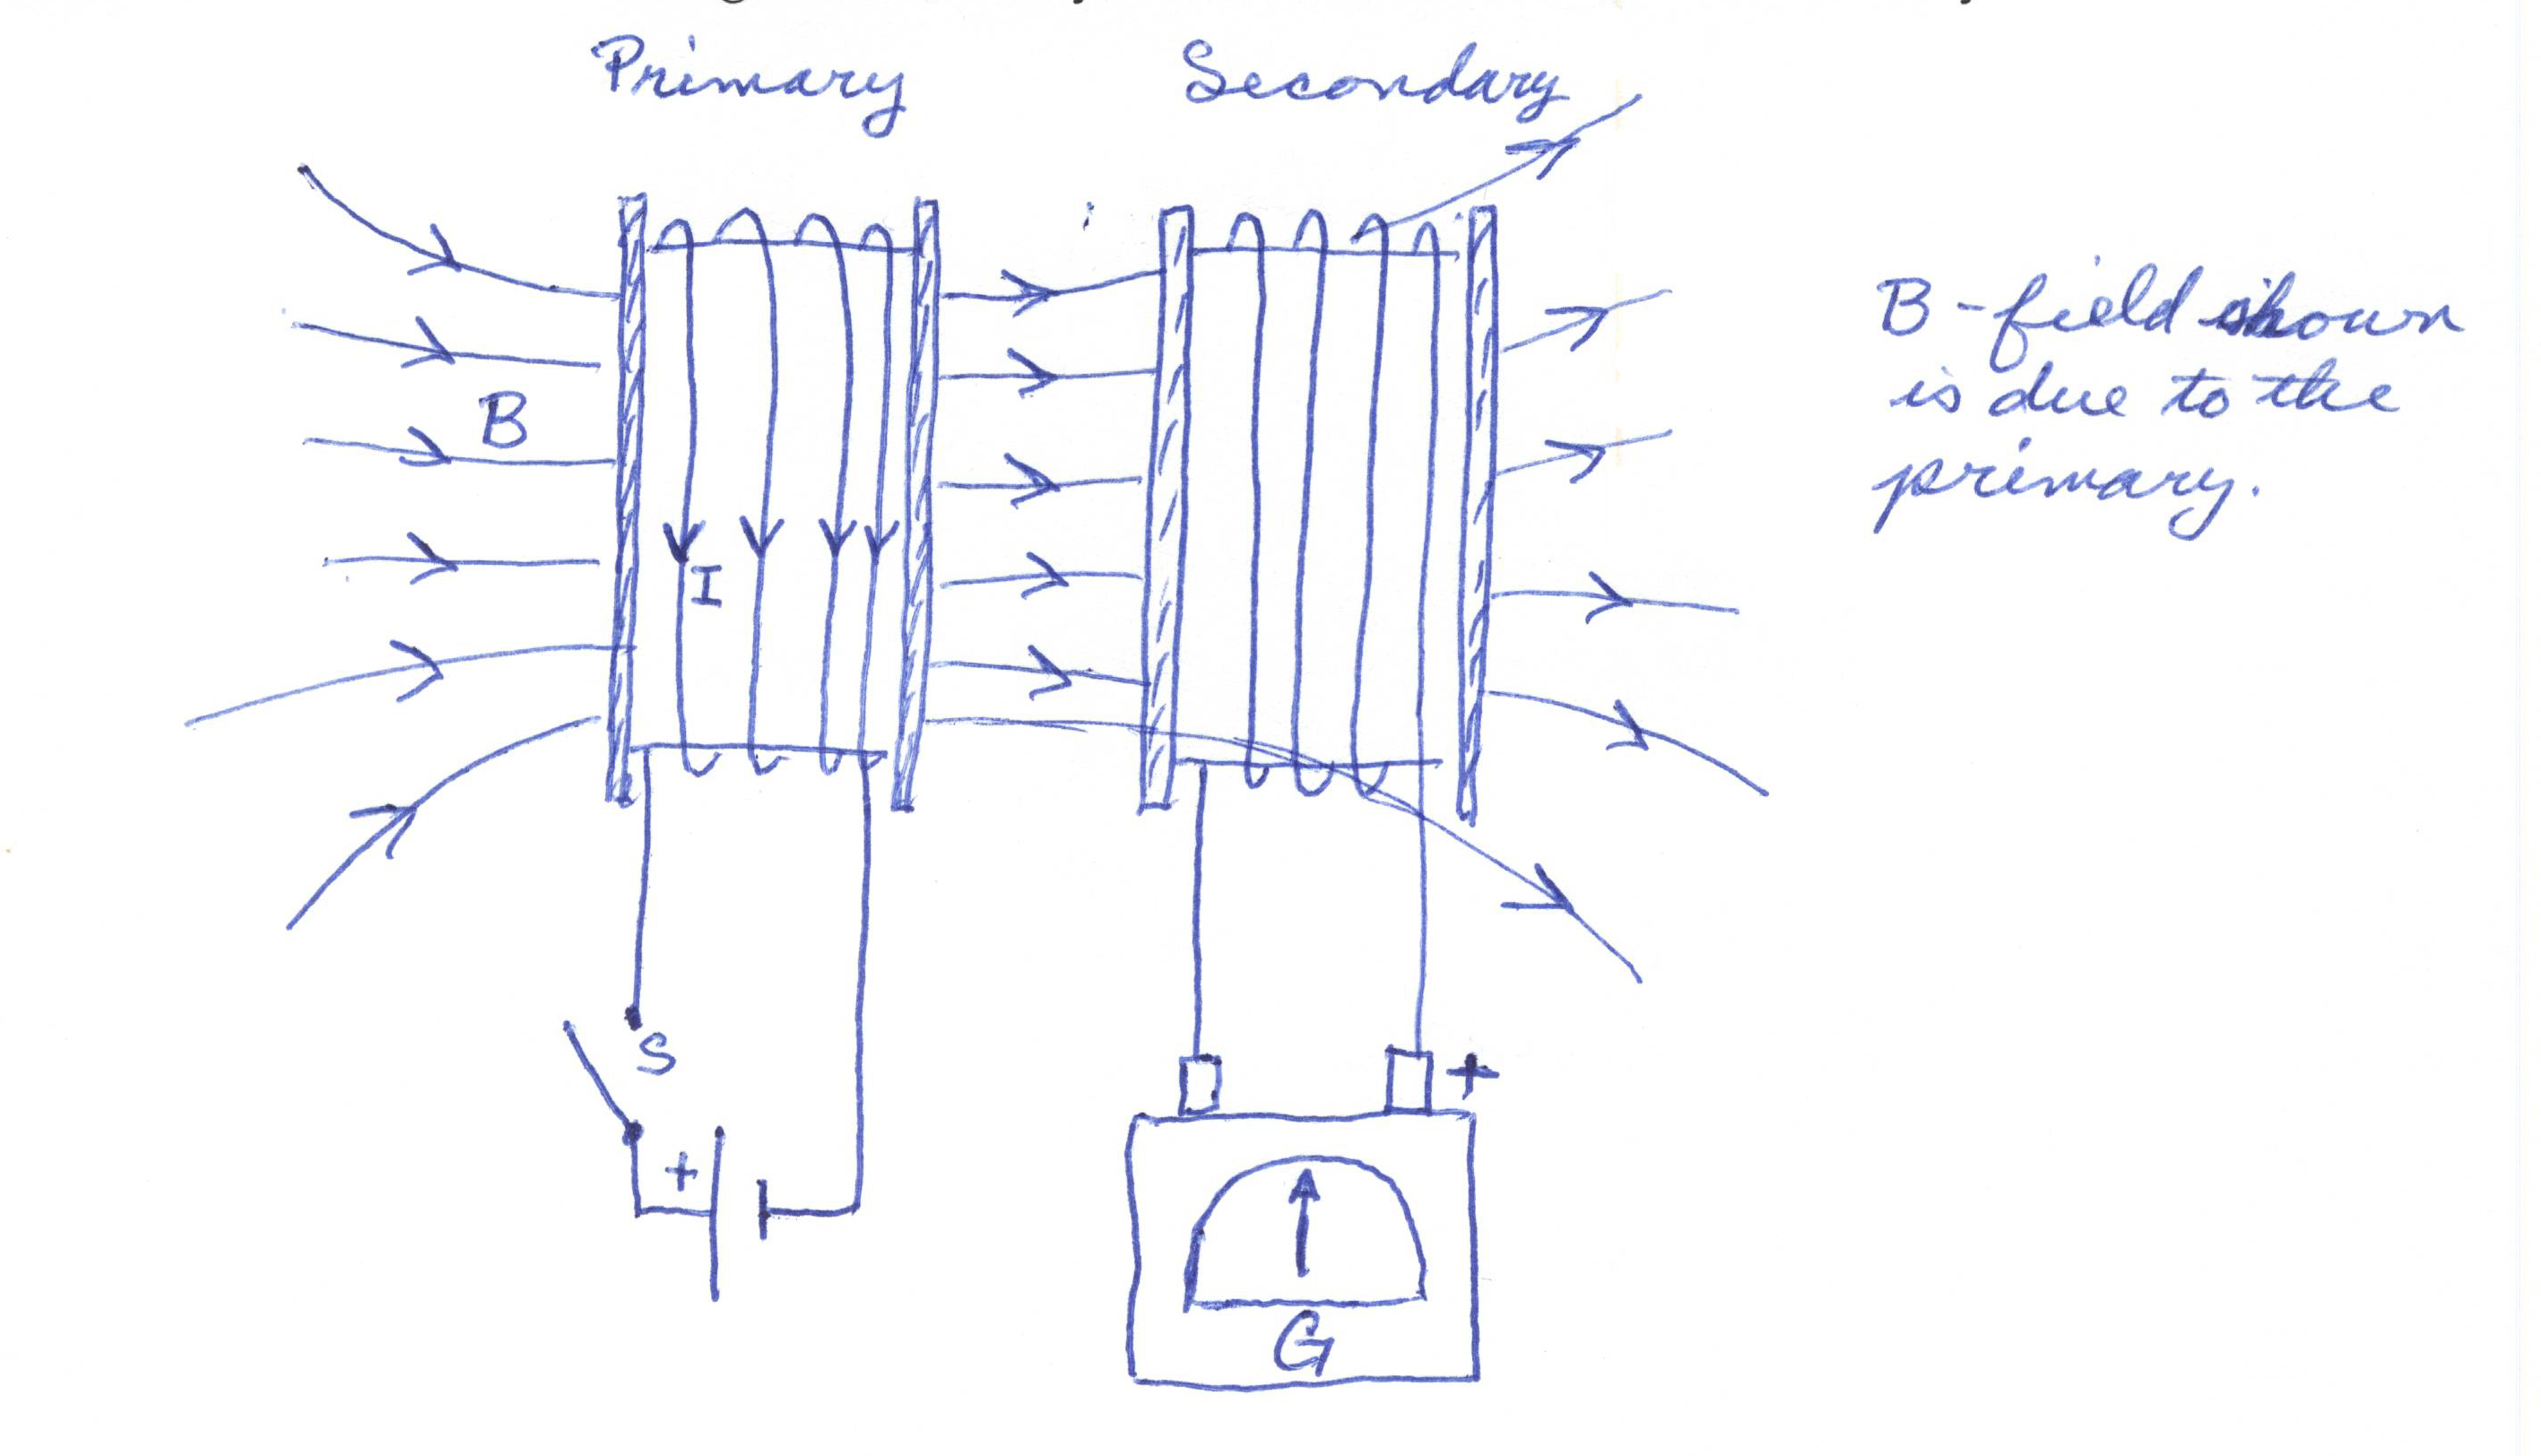 Primary
Secondary
B-field shown
is due to the
primary.
B
I
S
+
+
G